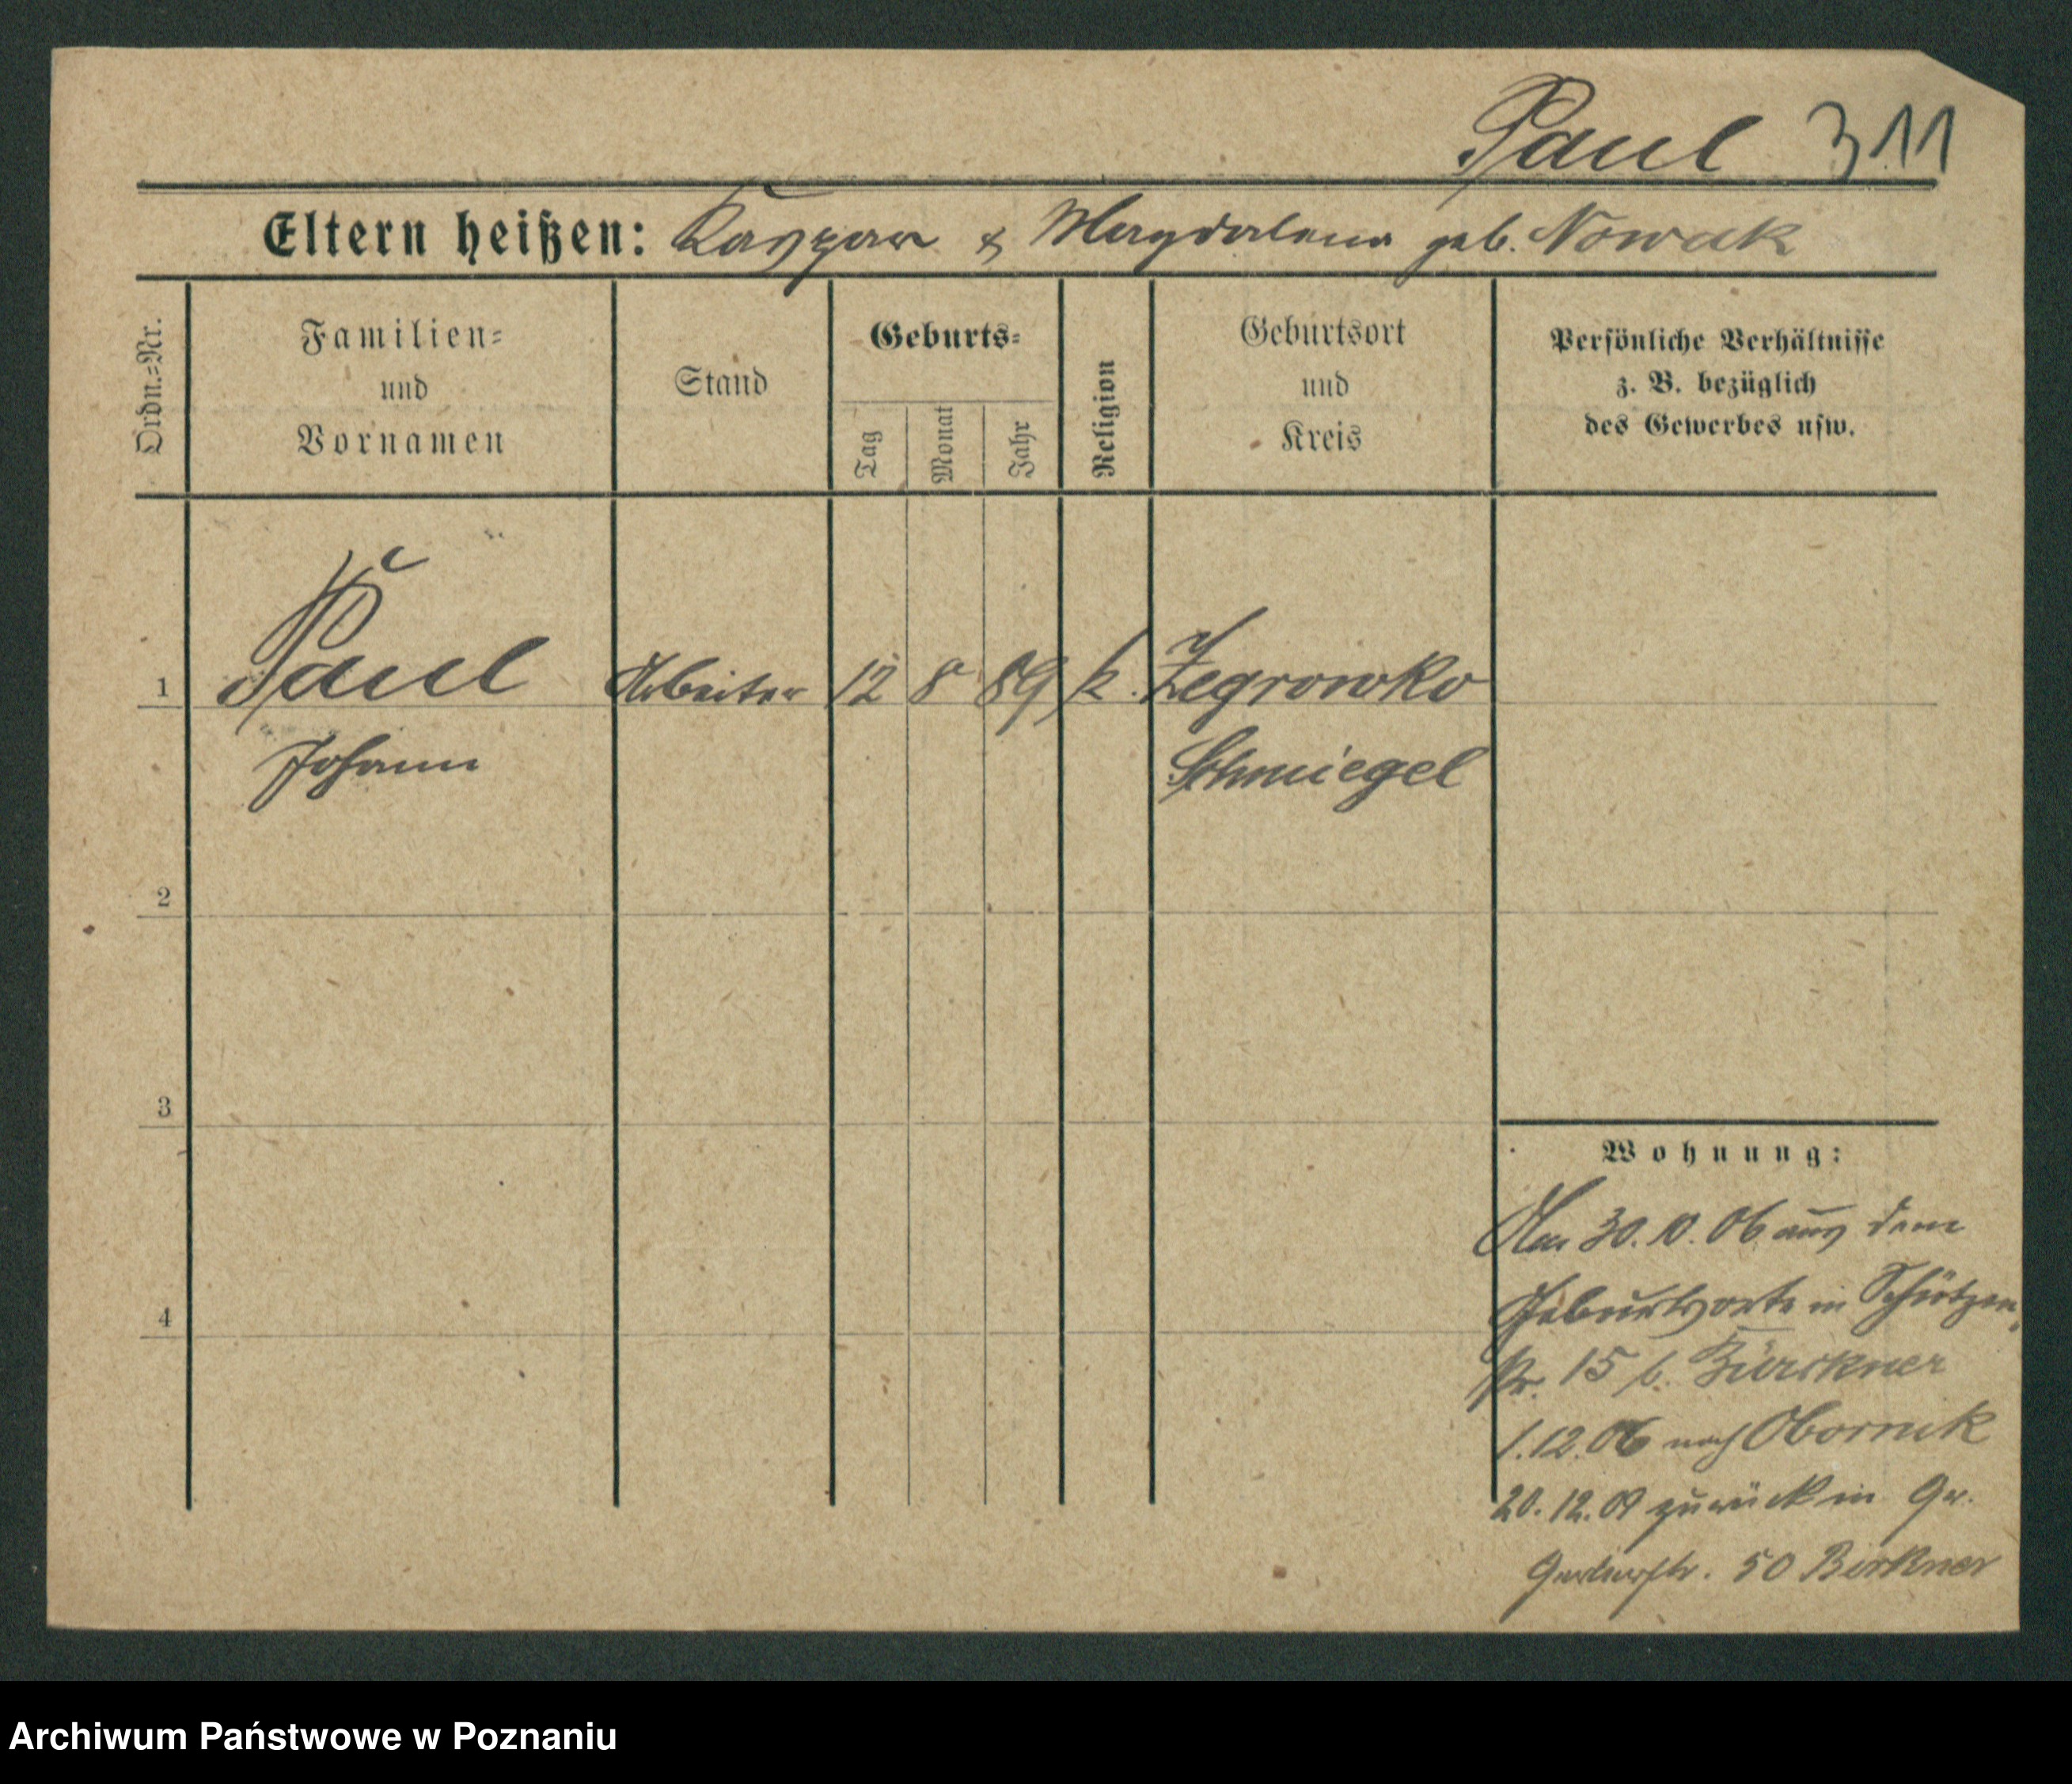 Paul 311
Eltern heißen: Kaspar & Magdalena geb. Nowak
Ordn.-Nr.
Familien-
und
Vornamen
Stand
Geburts-
Tag
Monat
Jahr
Religion
Geburtsort
und
Kreis
Persönliche Verhältnisse
z. B. bezüglich
des Gewerbes usw.
1 Paul Arbeiter 12 8 89 k. Zegrowko
Johann Schmiegel
2
3
4
Wohnung:
Am 30.10.06 aus dem
Geburtsorte in Schützen-
str. 15 b.
1.12.06 nach Obornik
20.12.09 zurück in Gr.
Gerberstr. 50 Birkner
Archiwum Państwowe w Poznaniu